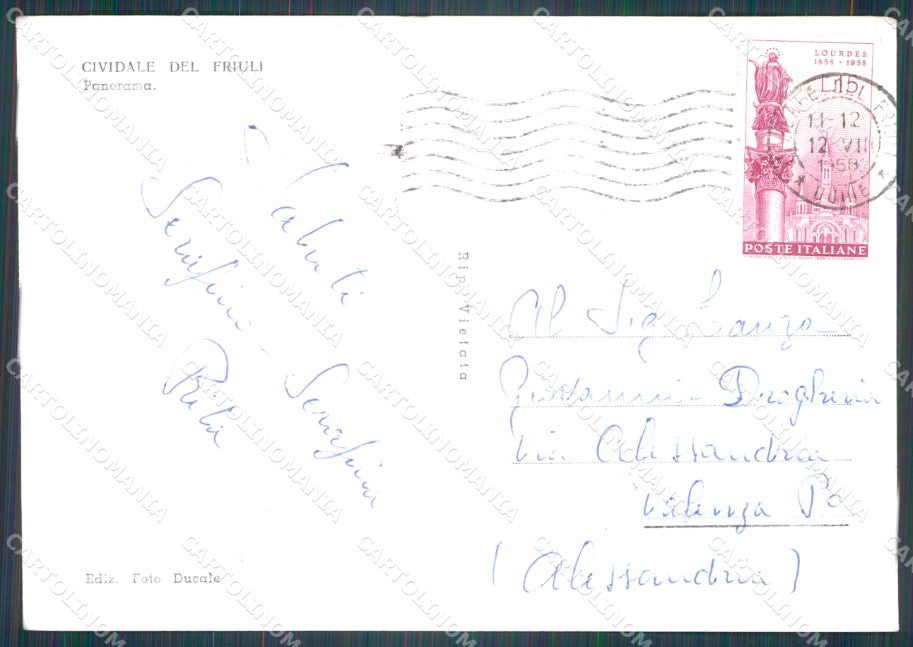 CIVIDALE DEL FRIULI
Panorama.
Saluti
Serafini
Serafini
Rita
Rip. Vietata
Ediz. Foto Ducale
LOURDES
1858 - 1958
POSTE ITALIANE
11-12
12 VII
1958
UDINE
Al Sig Lanza
Giovanni Drogheria
Via Alessandria
Valenza Po
(Alessandria)
CARTOLINOMANIA